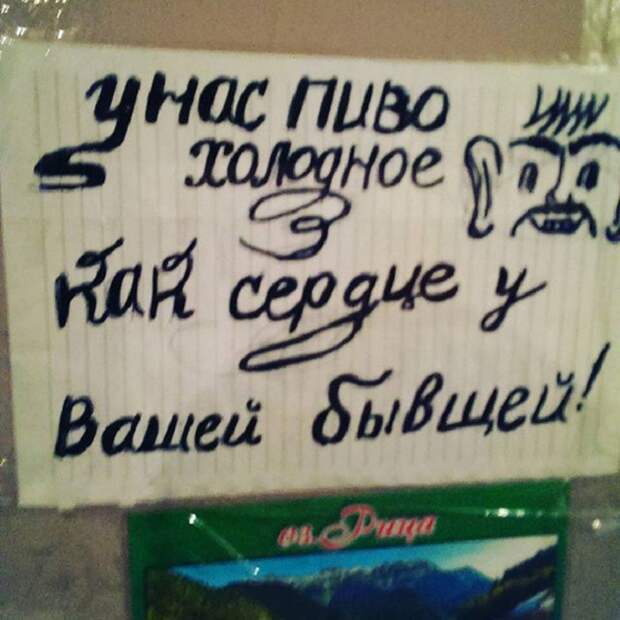 унас пиво
холодное
как сердце у
Вашей бывщей!
оз. Рица